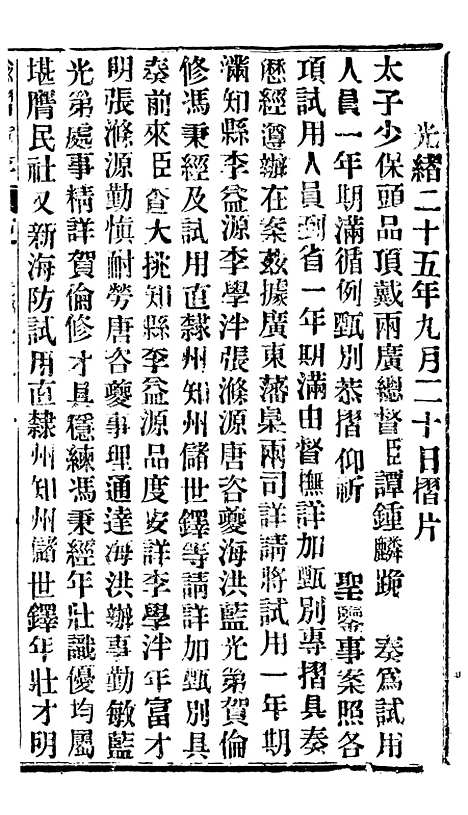 光緒二十五年九月二十日摺片
太子少保頭品頂戴兩廣總督臣譚鍾麟跪 奏爲試用
人員一年期滿循例甄別恭摺仰祈 聖鑒事案照各
項試用人員到省一年期滿由督撫詳加甄別專摺具奏
歷經遵辦在案茲據廣東藩臬兩司詳請將試用一年期
滿知縣李益源李學泮張滌源唐咨夔海洪藍光第賀倫
修馮秉經及試用直隸州知州儲世鐸等請詳加甄別具
奏前來臣查大挑知縣李益源品度安詳李學泮年富才
明張滌源勤慎耐勞唐咨夔事理通達海洪辦事勤敏藍
光第處事精詳賀倫修才具穩練馮秉經年壯識優均屬
堪膺民社又新海防試用直隸州知州儲世鐸年壯才明